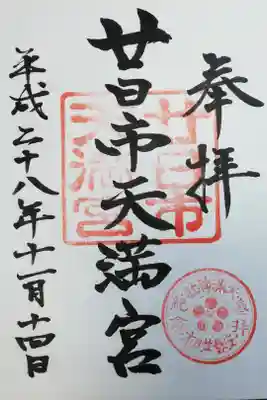 奉拝
廿日市天満宮
平成二十八年十一月十四日
廿日市
天満宮